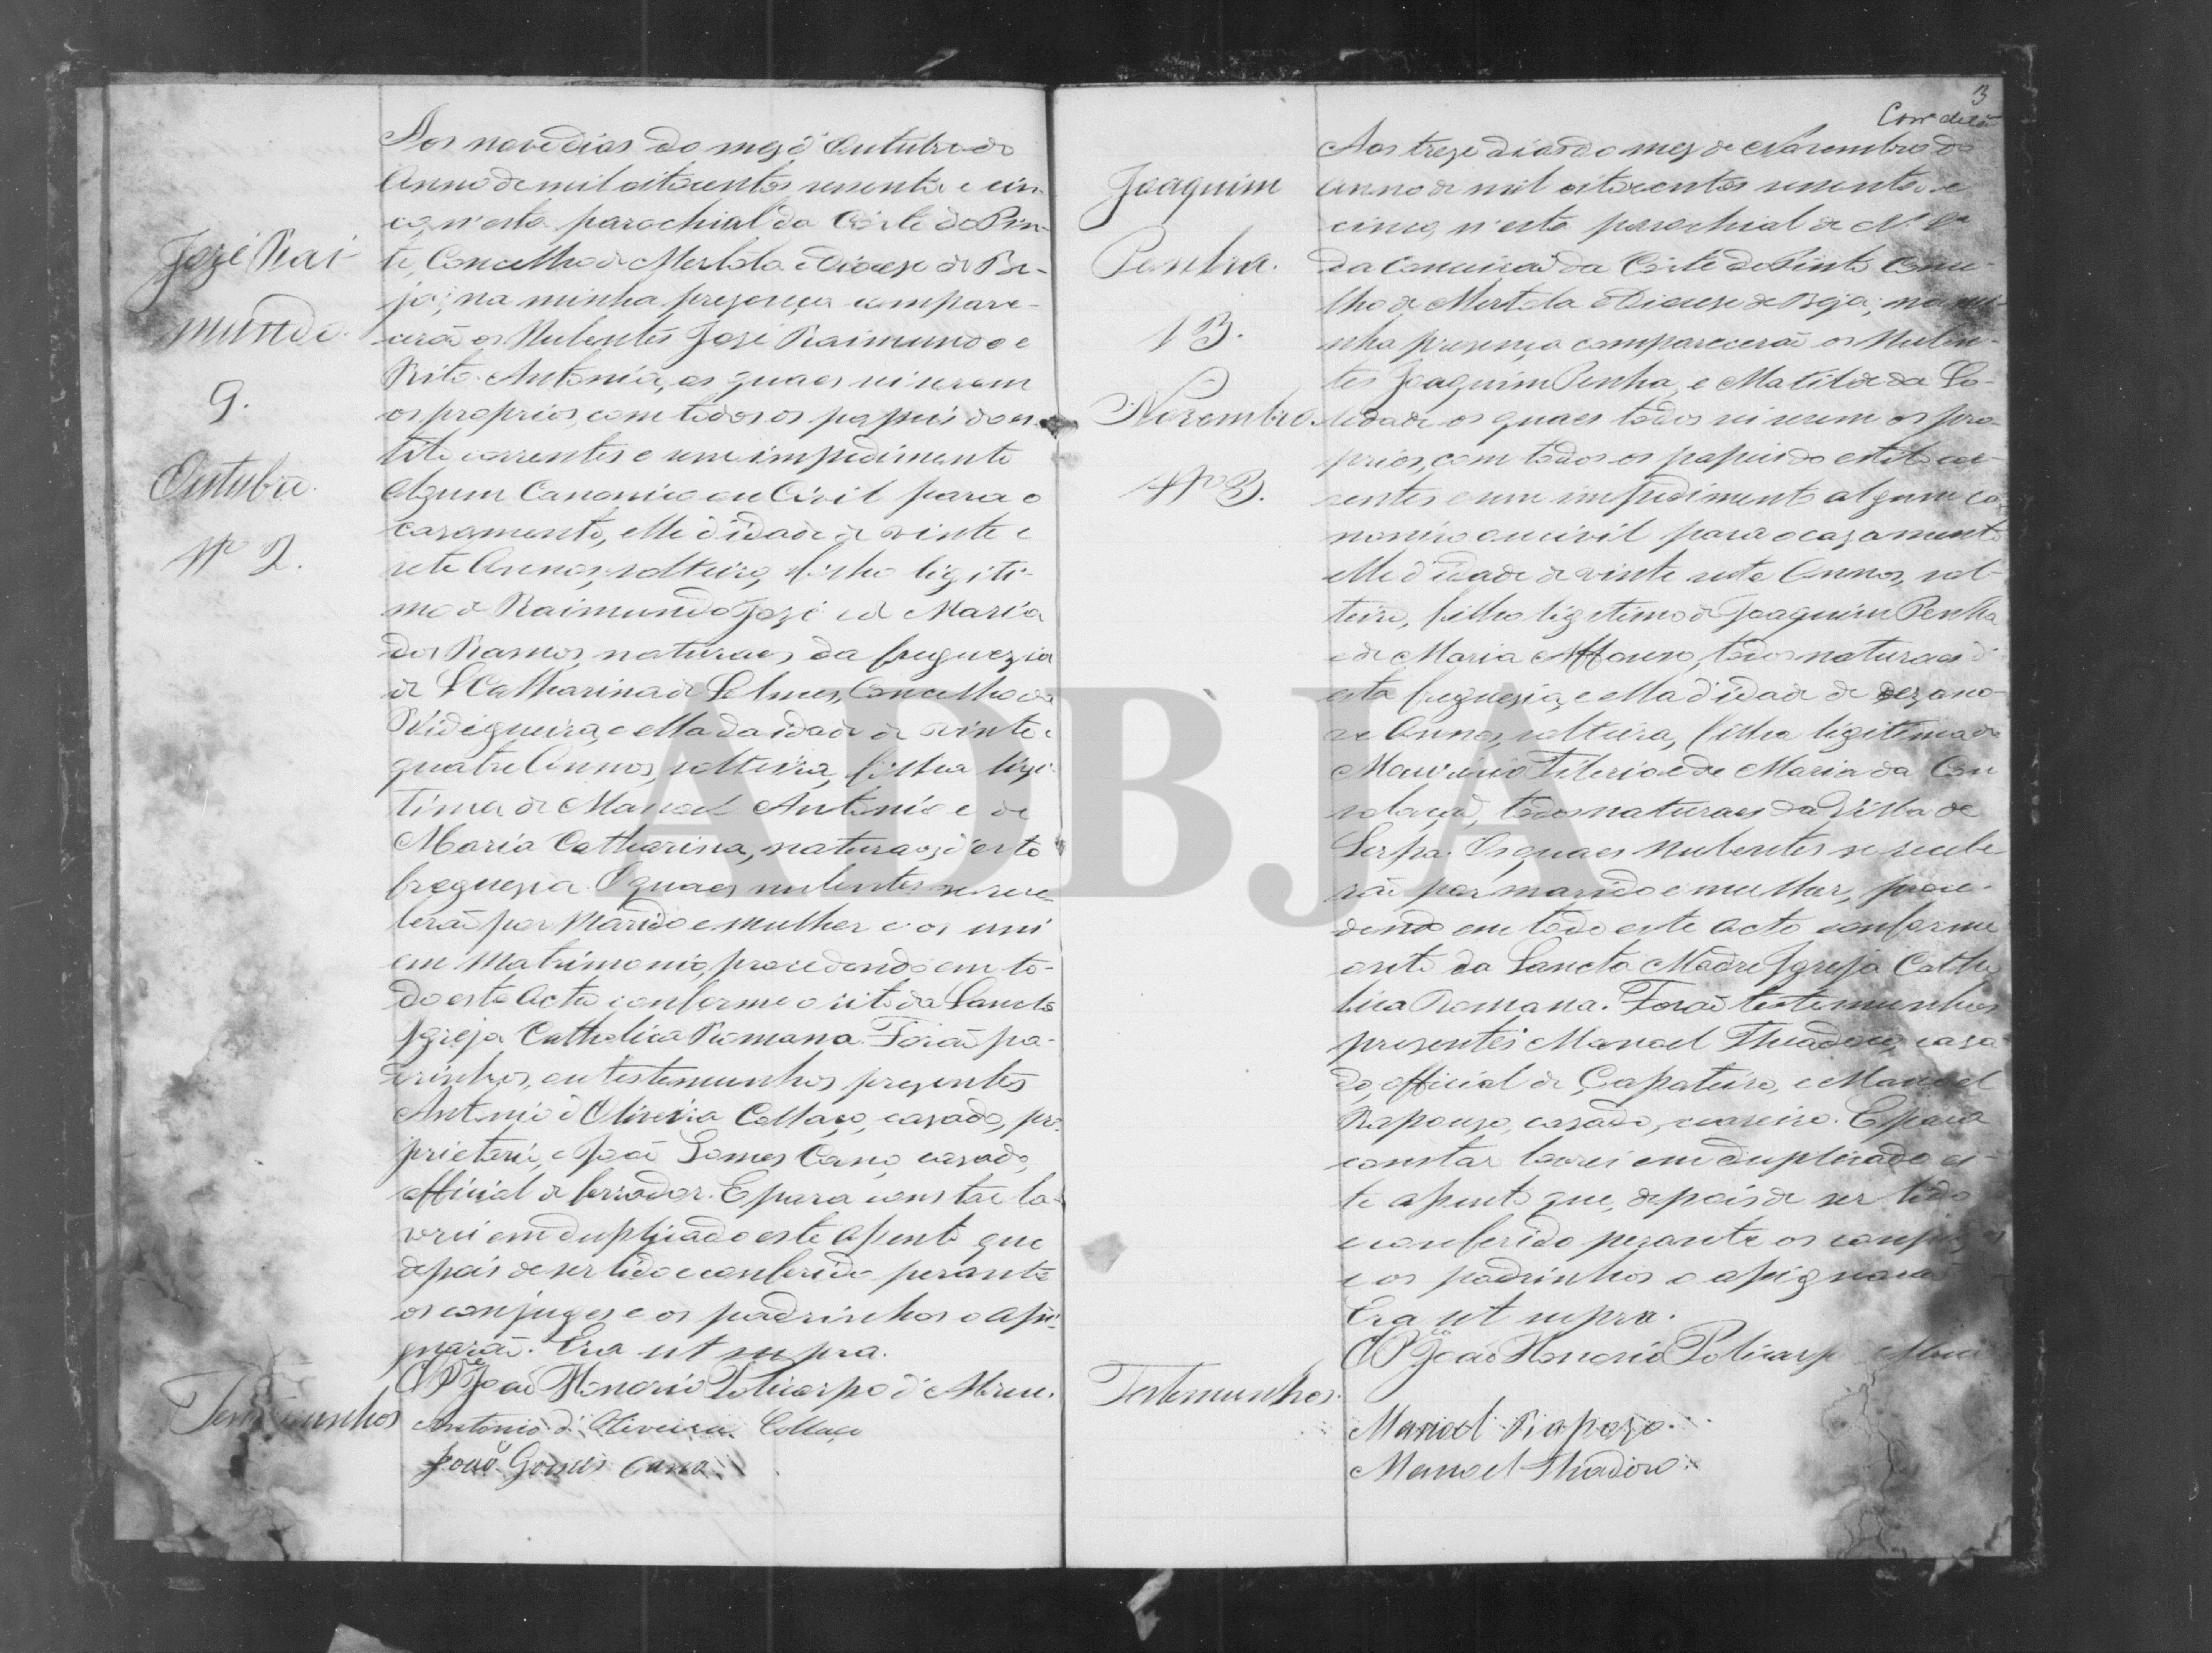 Jozé Rai-
mundo.
9.
Outubro.
Nº 2.
Aos nove dias do mez d'Outubro do
Anno de mil oitocentos sessenta e cin-
co, n'esta parochial da Corte do Pin-
to, Concelho de Mertola e Diocese de Be-
ja; na minha prezença compare-
cerão os Nubentes José Raimundo e
Rita Antonia, os quaes sei serem
os proprios, com todos os papeis do es-
tilo correntes e sem impedimento
algum Canonico ou Civil para o
cazamento, elle d'idade de vinte e
sete Annos, solteiro, filho ligiti-
mo de Raimundo Jozé e de Maria
dos Ramos, naturaes da freguezia
de S. Catharina de Selmes, Concelho da
Vidigueira, e ella da idade de vinte e
quatro Annos, solteira, filha ligi-
tima de Manoel Antonio e de
Maria Catharina, naturaes d'esta
freguesia. Os quaes nubentes se rece-
berão por Marido e Mulher e os uni
em Matrimonio, procedendo em to-
do este Acto conforme o rito da Sancta
Igreja Catholica Romana. Forão pa-
drinhos, ou testemunhas prezentes
Antonio d'Oliveira Collaço, cazado, pro-
prietario, e João Gomes Cano, cazado,
official de ferrador. E para constar la-
vrei em duplicado este Assento que
depois de ser lido e conferido perante
os conjuges e os padrinhos o assi-
gnarão. Era ut supra.
O Pe João Honorio Policarpo d'Abreu.
Testemunhas
Antonio d'Oliveira Collaço
João Gomes Cano
3
Joaquim
Penha.
13.
Novembro.
Nº 3.
Aos treze dias do mez de Novembro do
Anno de mil oitocentos sessenta e
cinco, n'esta parochial de N. Sra
da Conceição da Corte do Pinto Conce-
lho de Mertola e Diocese de Beja; na mi-
nha prezença comparecerão os Nuben-
tes Joaquim Penha, e Matilde da So-
ledade os quaes todos sei serem os pro-
prios, com todos os papeis do estilo cor-
rentes e sem impedimento algum ca-
nonico ou civil para o cazamento
elle d'idade de vinte sete Annos, sol-
teiro, filho ligitimo de Joaquim Penha
e de Maria Affonso, todos naturaes d'
esta freguesia, e ella d'idade de dezano-
ve Annos, solteira, filha ligitima de
Mauricio e de Maria da Con
solação, todos naturaes da Villa de
Serpa. Os quaes Nubentes se recebe-
rão por marido e mulher, proce-
dendo em todo este acto conforme
o rito da Sancta Madre Igreja Catho
lica Romana. Forão testemunhas
prezentes Manoel Theadoro, caza
do, official de Çapateiro, e Manoel
Rapouzo, cazado, E para
constar lavrei em duplicado es-
te assento que, depois de ser lido
e conferido perante os conjuges
e os padrinhos o assignarão
Era ut supra.
O Pe João Honorio Policarpo d'Abreu
Testemunhas.
Manoel Rapozo.
Manoel Thiadoro
ADBJA